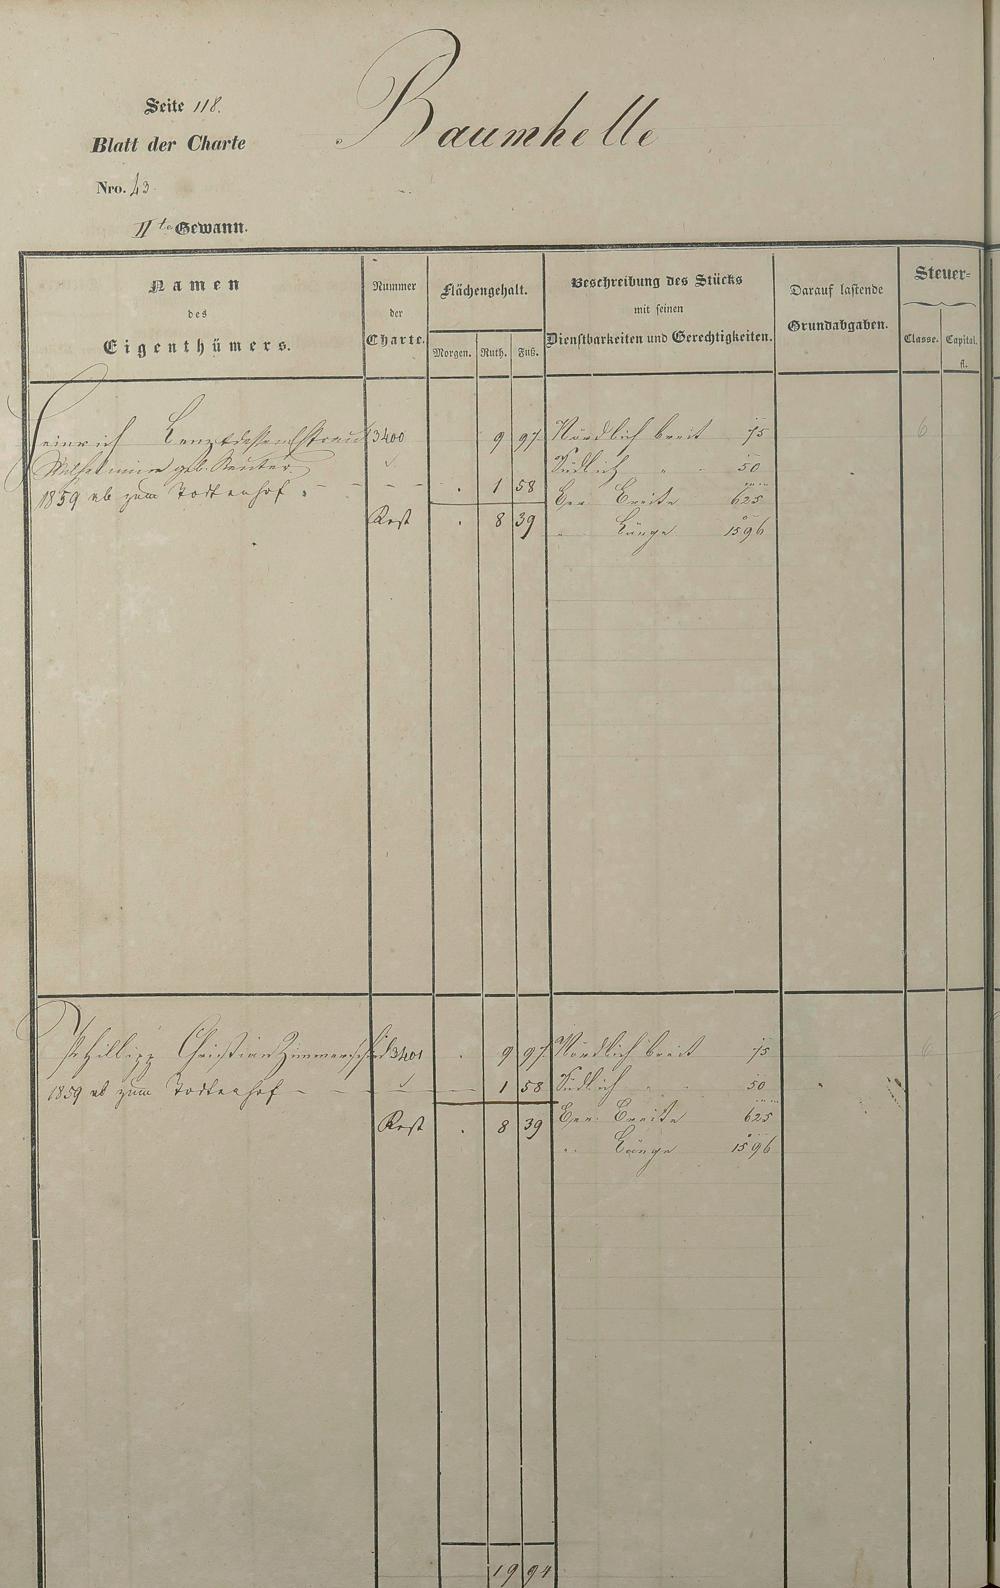 Seite 118.
Baumhelle
Blatt der Charte
Nro. 43
IIte Gewann.
Namen
des
Eigenthümers.
Nummer
der
Charte.
Flächengehalt.
Morgen. Ruth. Fuß.
Beschreibung des Stücks
mit seinen
Dienstbarkeiten und Gerechtigkeiten.
Darauf lastende
Grundabgaben.
Steuer-
Classe. Capital.
fl.
Heinrich Lenz 3400 9 97 Nördlich breit 75 6
Wilhelmine geb. Reuter Südlich " 50
1859 ab zum Todtenhof 1 58 Breite 625
Rest . 8 39 " Länge 1596
Phillipp Christian Zimmerschied 3401 . 9 97 Nördlich breit 75 6
1859 ab zum Todtenhof 1 58 Südlich " 50
Rest . 8 39 Breite 625
" Länge 1596
19 94